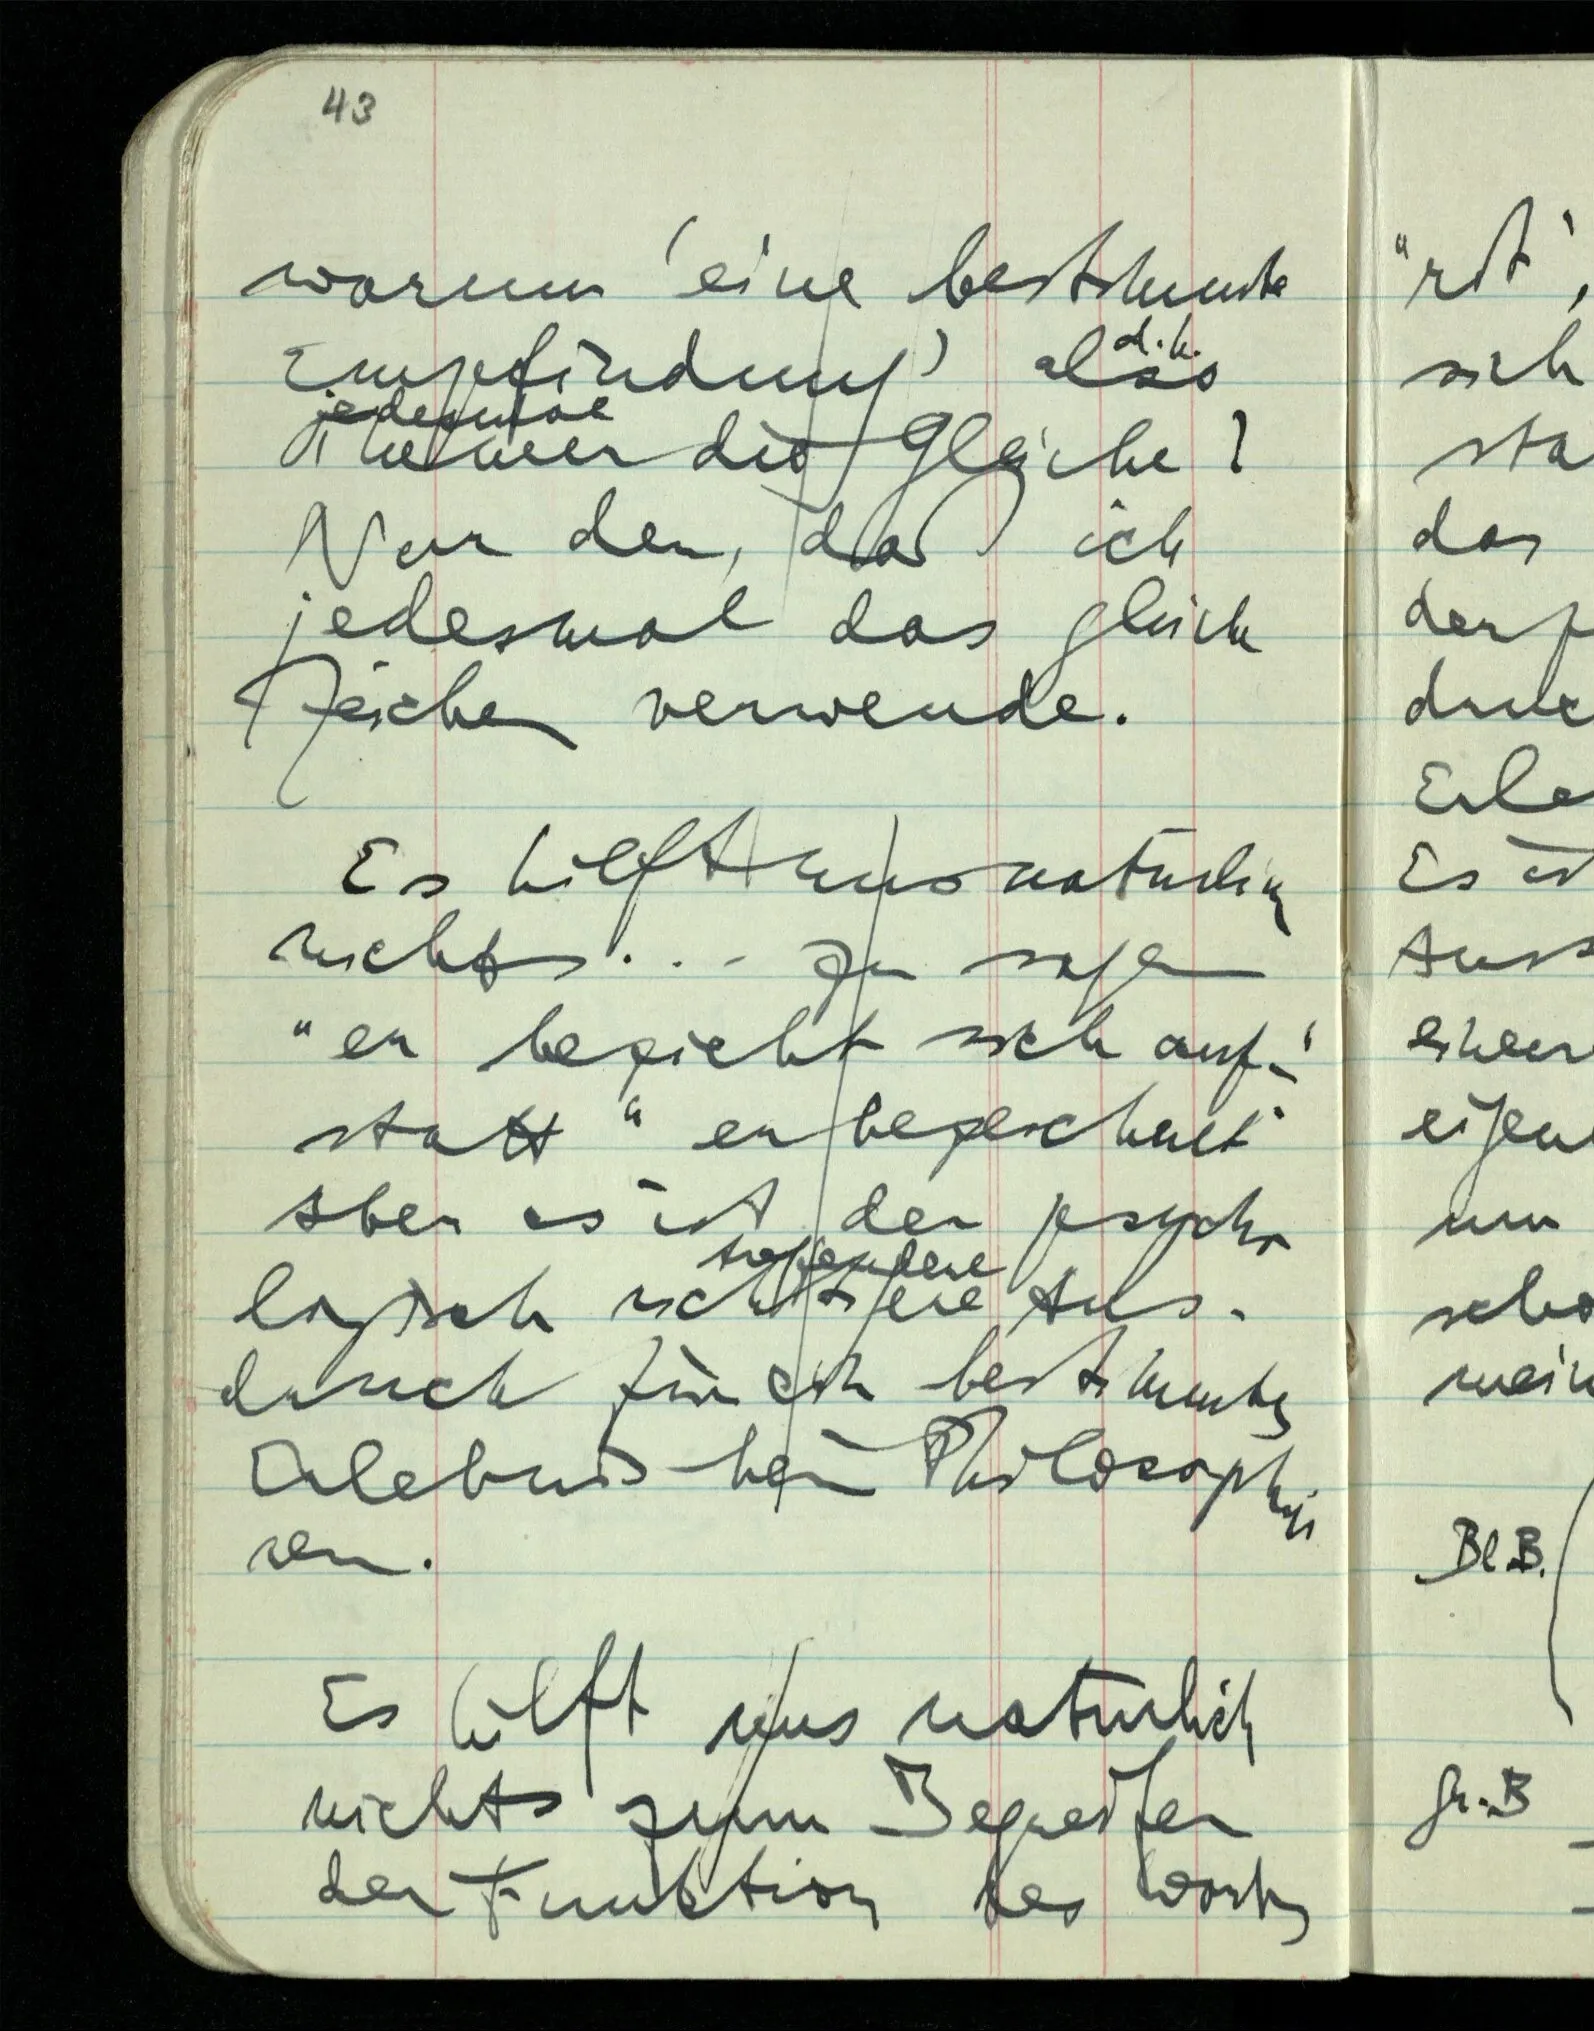 43
warum 'eine bestimmte
Empfindung' also
d.h.
jedesmal
immer die Gleiche?
Nur den, daß ich
jedesmal das gleiche
Zeichen verwende.
Es hilft uns natürlich
nichts... zu sagen
"er bezieht sich auf"
statt "er bezeichnet"
Aber es ist der psycho
treffendere
logisch richtigere Aus-
druck für ein bestimmtes
Erlebnis beim Philosophie
ren.
Es hilft uns natürlich
nichts zum Begreifen
der Funktion des Worts
"rot",
sich
sta
das
derp
druc
Erle
Es ist
Auss
einem
eigent
um
scho
mein
Bl.B.
Gr.B